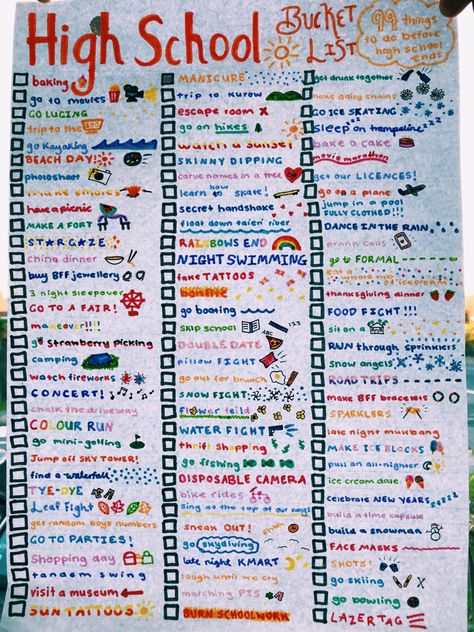 High School
BUCKET
LIST
99 things
to do before
high school
ends
baking
go to movies
GO LUGING
trip to the
go kayaking
BEACH DAY!
photoshoot
make smores
have a picnic
MAKE A FORT
STARGAZE
china dinner
buy BFF jewellery
3 night sleepover
GO TO A FAIR!
makeover!!!!
go strawberry picking
camping
watch fireworks
CONCERT!
chalk the driveway
COLOUR RUN
go mini-golfing
Jump off SKY TOWER!
find a waterfall
TYE-DYE
Leaf Fight
get random boys numbers
GO TO PARTIES!
Shopping day
tandem swing
visit a museum
SUN TATTOOS
MANICURE
trip to Kurow
escape room
go on hikes
watch a sunset
SKINNY DIPPING
carve names in a tree
learn how to skate!
secret handshake
float down taieri river
RAINBOWS END
NIGHT SWIMMING
fake TATTOOS
go boating
SKIP SCHOOL
DOUBLE DATE
pillow FIGHT
go out for brunch
SNOW FIGHT
flower feild
WATER FIGHT
thrift shopping
go fishing
DISPOSABLE CAMERA
bike rides
sing at the top of our lungs
sneak OUT!
go skydiving
late night KMART
laugh until we cry
matching PJS
BURN SCHOOLWORK
get drunk together
make daisy chains
GO ICE SKATING
sleep on trampoline
bake a cake
movie marathon
get our LICENCES!
go on a plane
jump in a pool
FULLY CLOTHED!!!
DANCE IN THE RAIN
prank calls
go to FORMAL
eat a
whole tub
of icecream
thanksgiving dinner
FOOD FIGHT!!!
sit on a
RUN through sprinklers
snow angels
ROAD TRIPS
make BFF bracelets
SPARKLERS
late night mukbang
MAKE ICE BLOCKS
pull an all-nighter
ice cream date
celebrate NEW YEARS
build a time capsule
build a snowman
FACE MASKS
SHOTS!
go skiing
go bowling
LAZERTAG